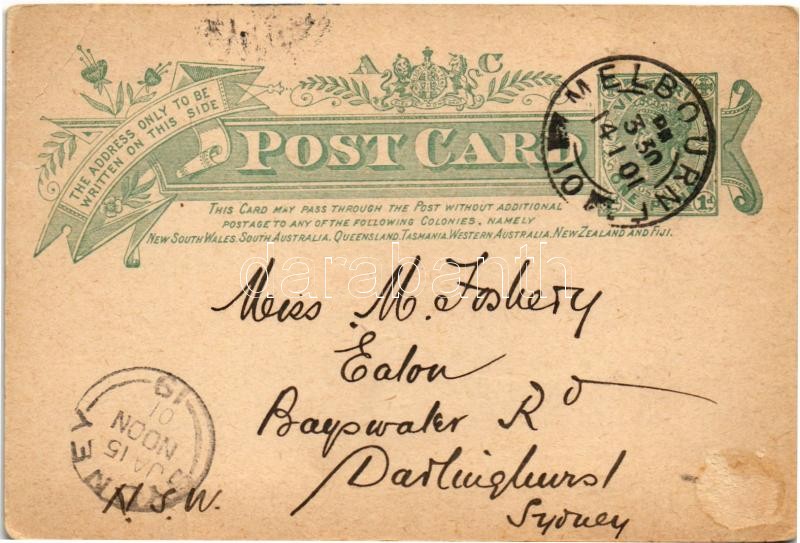 A C
THE ADDRESS ONLY TO BE
WRITTEN ON THIS SIDE
POST CARD
THIS CARD MAY PASS THROUGH THE POST WITHOUT ADDITIONAL
POSTAGE TO ANY OF THE FOLLOWING COLONIES, NAMELY
NEW SOUTH WALES. SOUTH AUSTRALIA. QUEENSLAND. TASMANIA. WESTERN AUSTRALIA. NEW ZEALAND AND FIJI.
MELBOURNE
3 30
PM
14 1 01
1d
darabanth
Miss M. Foshery
Eaton
Bayswater Rd
Darlinghurst
Sydney
N.S.W.
SYDNEY
NOON
JA 15
01
19